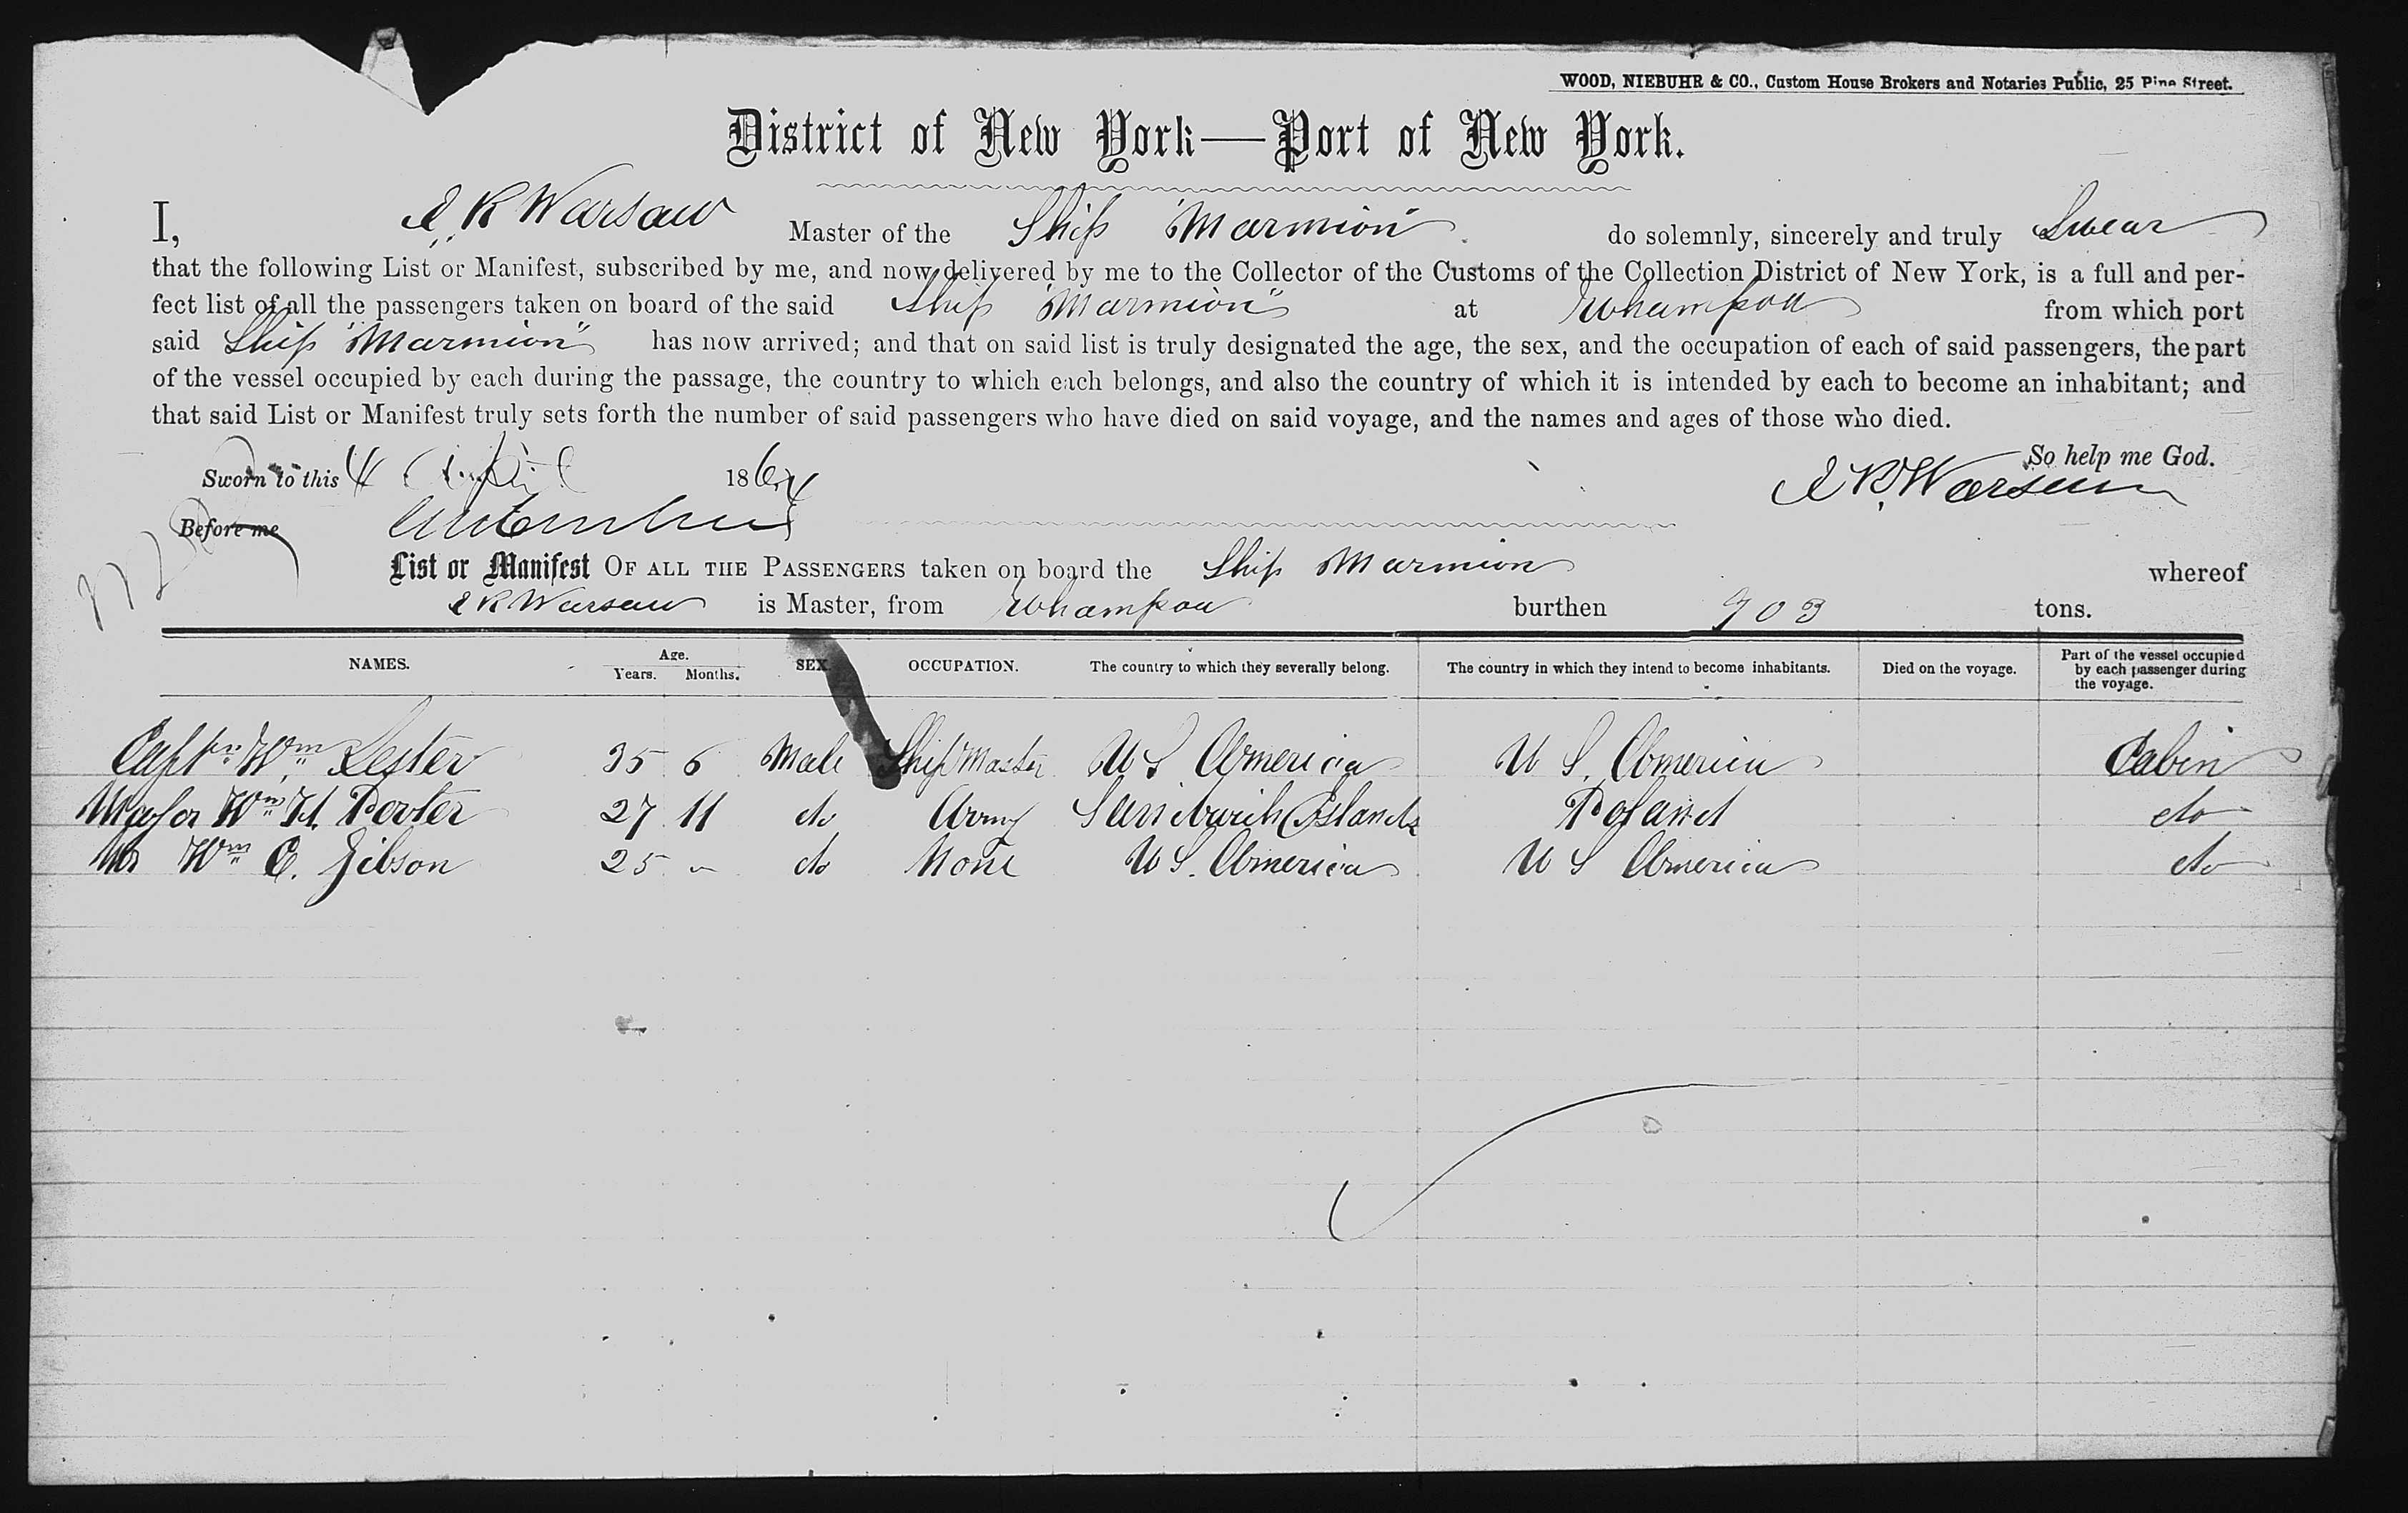 WOOD, NIEBUHR & CO., Custom House Brokers and Notaries Public, 25 Pine Street.
District of New York—Port of New York.
I, A. R Warsaw Master of the Ship "Marmion" do solemnly, sincerely and truly Swear
that the following List or Manifest, subscribed by me, and now delivered by me to the Collector of the Customs of the Collection District of New York, is a full and per-
fect list of all the passengers taken on board of the said Ship "Marmion" at Whampoa from which port
said Ship "Marmion" has now arrived; and that on said list is truly designated the age, the sex, and the occupation of each of said passengers, the part
of the vessel occupied by each during the passage, the country to which each belongs, and also the country of which it is intended by each to become an inhabitant; and
that said List or Manifest truly sets forth the number of said passengers who have died on said voyage, and the names and ages of those who died.
So help me God.
Sworn to this 4 April 1864 A R. Warsaw
Before me
List or Manifest OF ALL THE PASSENGERS taken on board the Ship Marmion whereof
A R Warsaw is Master, from Whampoa burthen 903 tons.
NAMES. Age. Years. Months. SEX. OCCUPATION. The country to which they severally belong. The country in which they intend to become inhabitants. Died on the voyage. Part of the vessel occupied by each passenger during the voyage.
Captn. Wm. Lester 35 6 Male Ship Master U S America U S. America Cabin
Major Wm H. Porter 27 11 do Army Sandwich Islands Poland do
Mr Wm C. Gibson 25 - do None U S. America U S America do